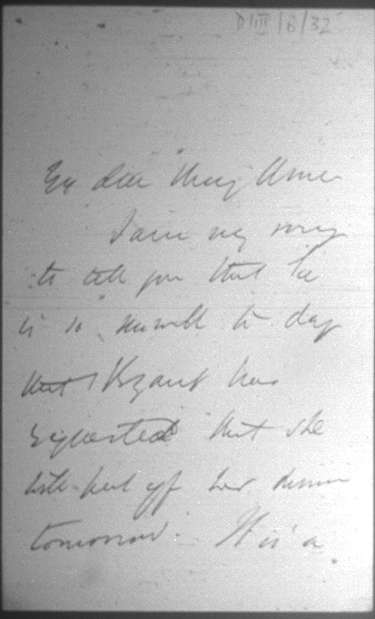 D III/8/32
My dear Mary Anne
I am very sorry
to tell you that
is so unwell to day
that Bryant has
requested that she
put off her dinner
tomorrow. It is a